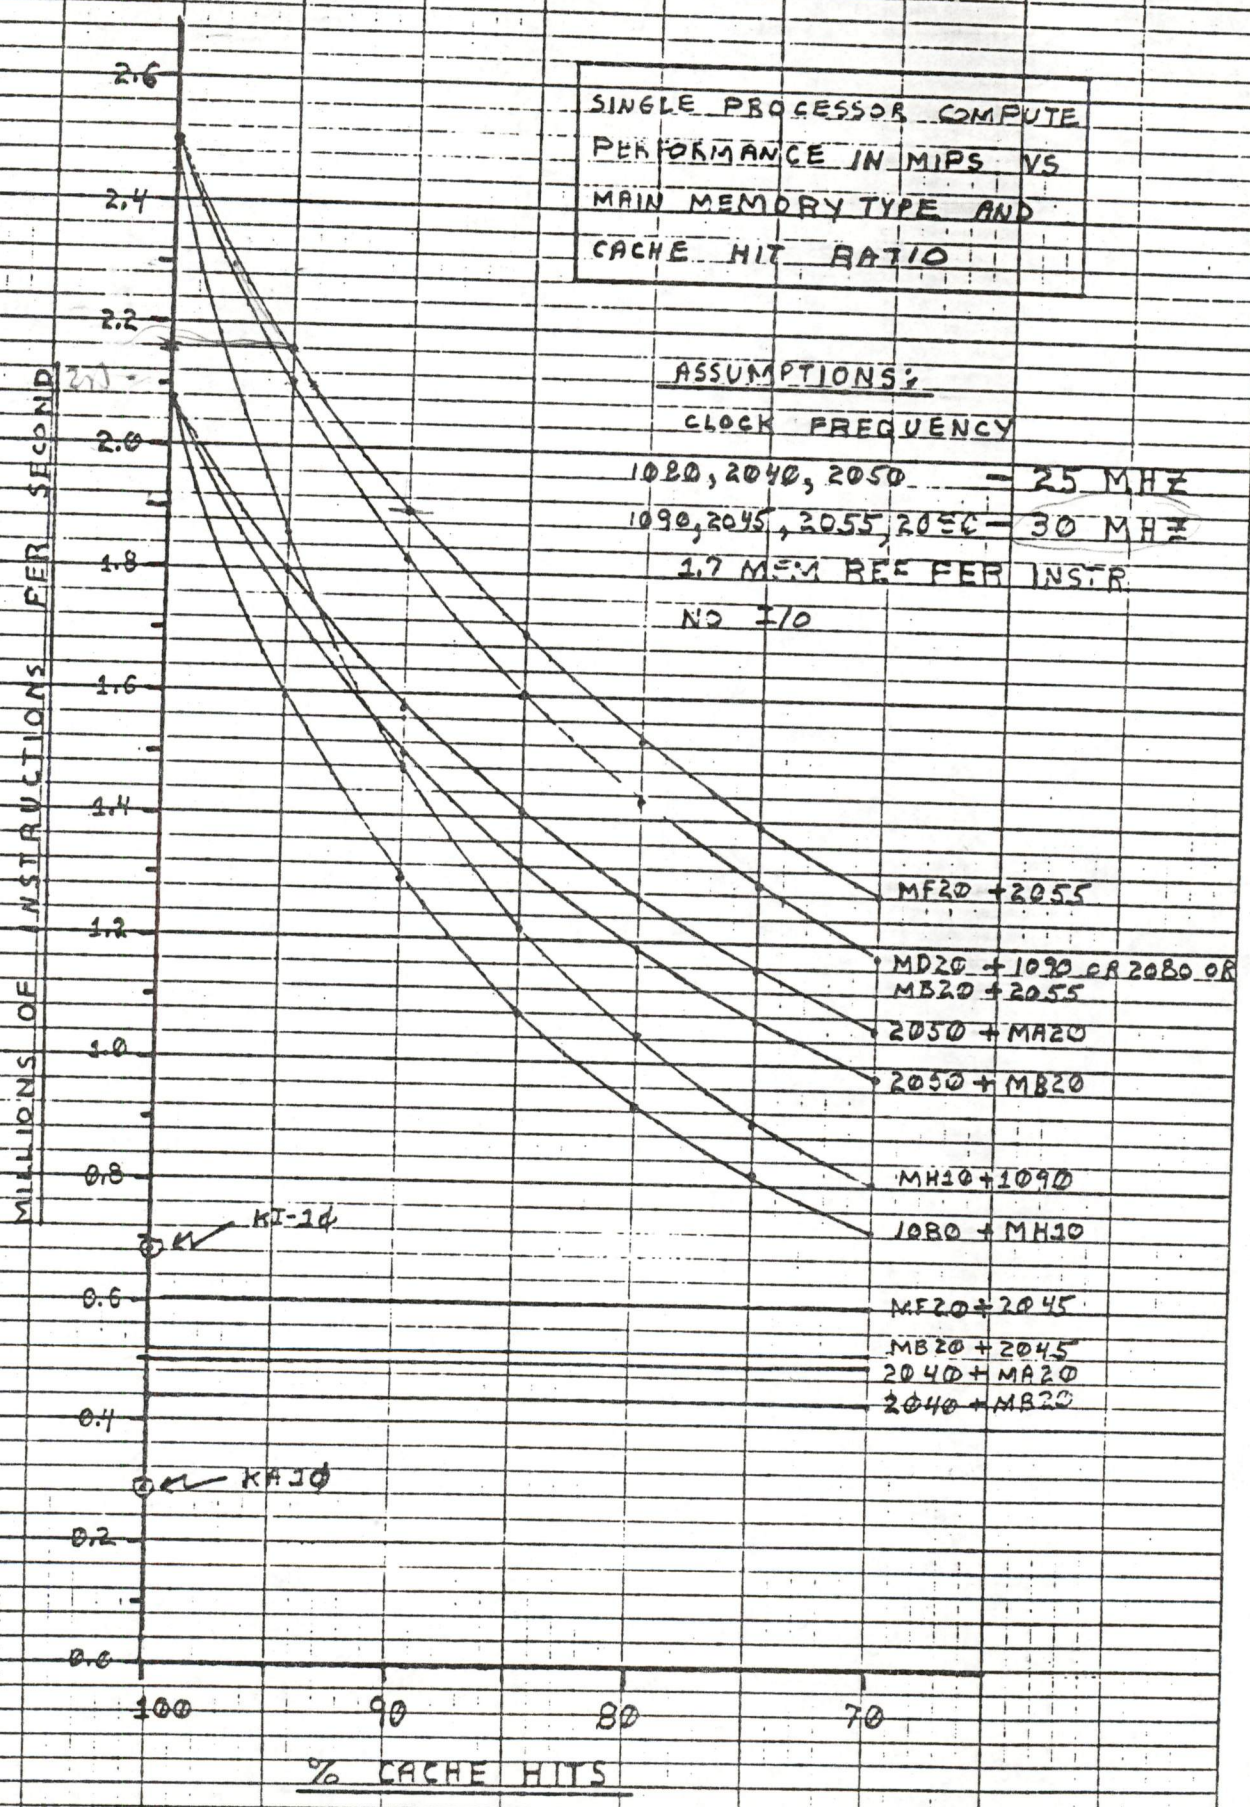 2.6
SINGLE PROCESSOR COMPUTE
PERFORMANCE IN MIPS VS
MAIN MEMORY TYPE AND
CACHE HIT RATIO
2.4
2.2
ASSUMPTIONS:
CLOCK FREQUENCY
1080, 2040, 2050 - 25 MHZ
1090, 2045, 2055, 2080 - 30 MHZ
1.7 MEM REF PER INSTR
NO I/O
2.0
1.8
1.6
1.4
1.2
1.0
0.8
0.6
0.4
0.2
0.0
MILLIONS OF INSTRUCTIONS PER SECOND
MF20 + 2055
MD20 + 1090 OR 2080 OR
MB20 + 2055
2050 + MA20
2050 + MB20
MH10 + 1090
1080 + MH10
KI-10
MF20 + 2045
MB20 + 2045
2040 + MA20
2040 + MB20
KA10
100 90 80 70
% CACHE HITS